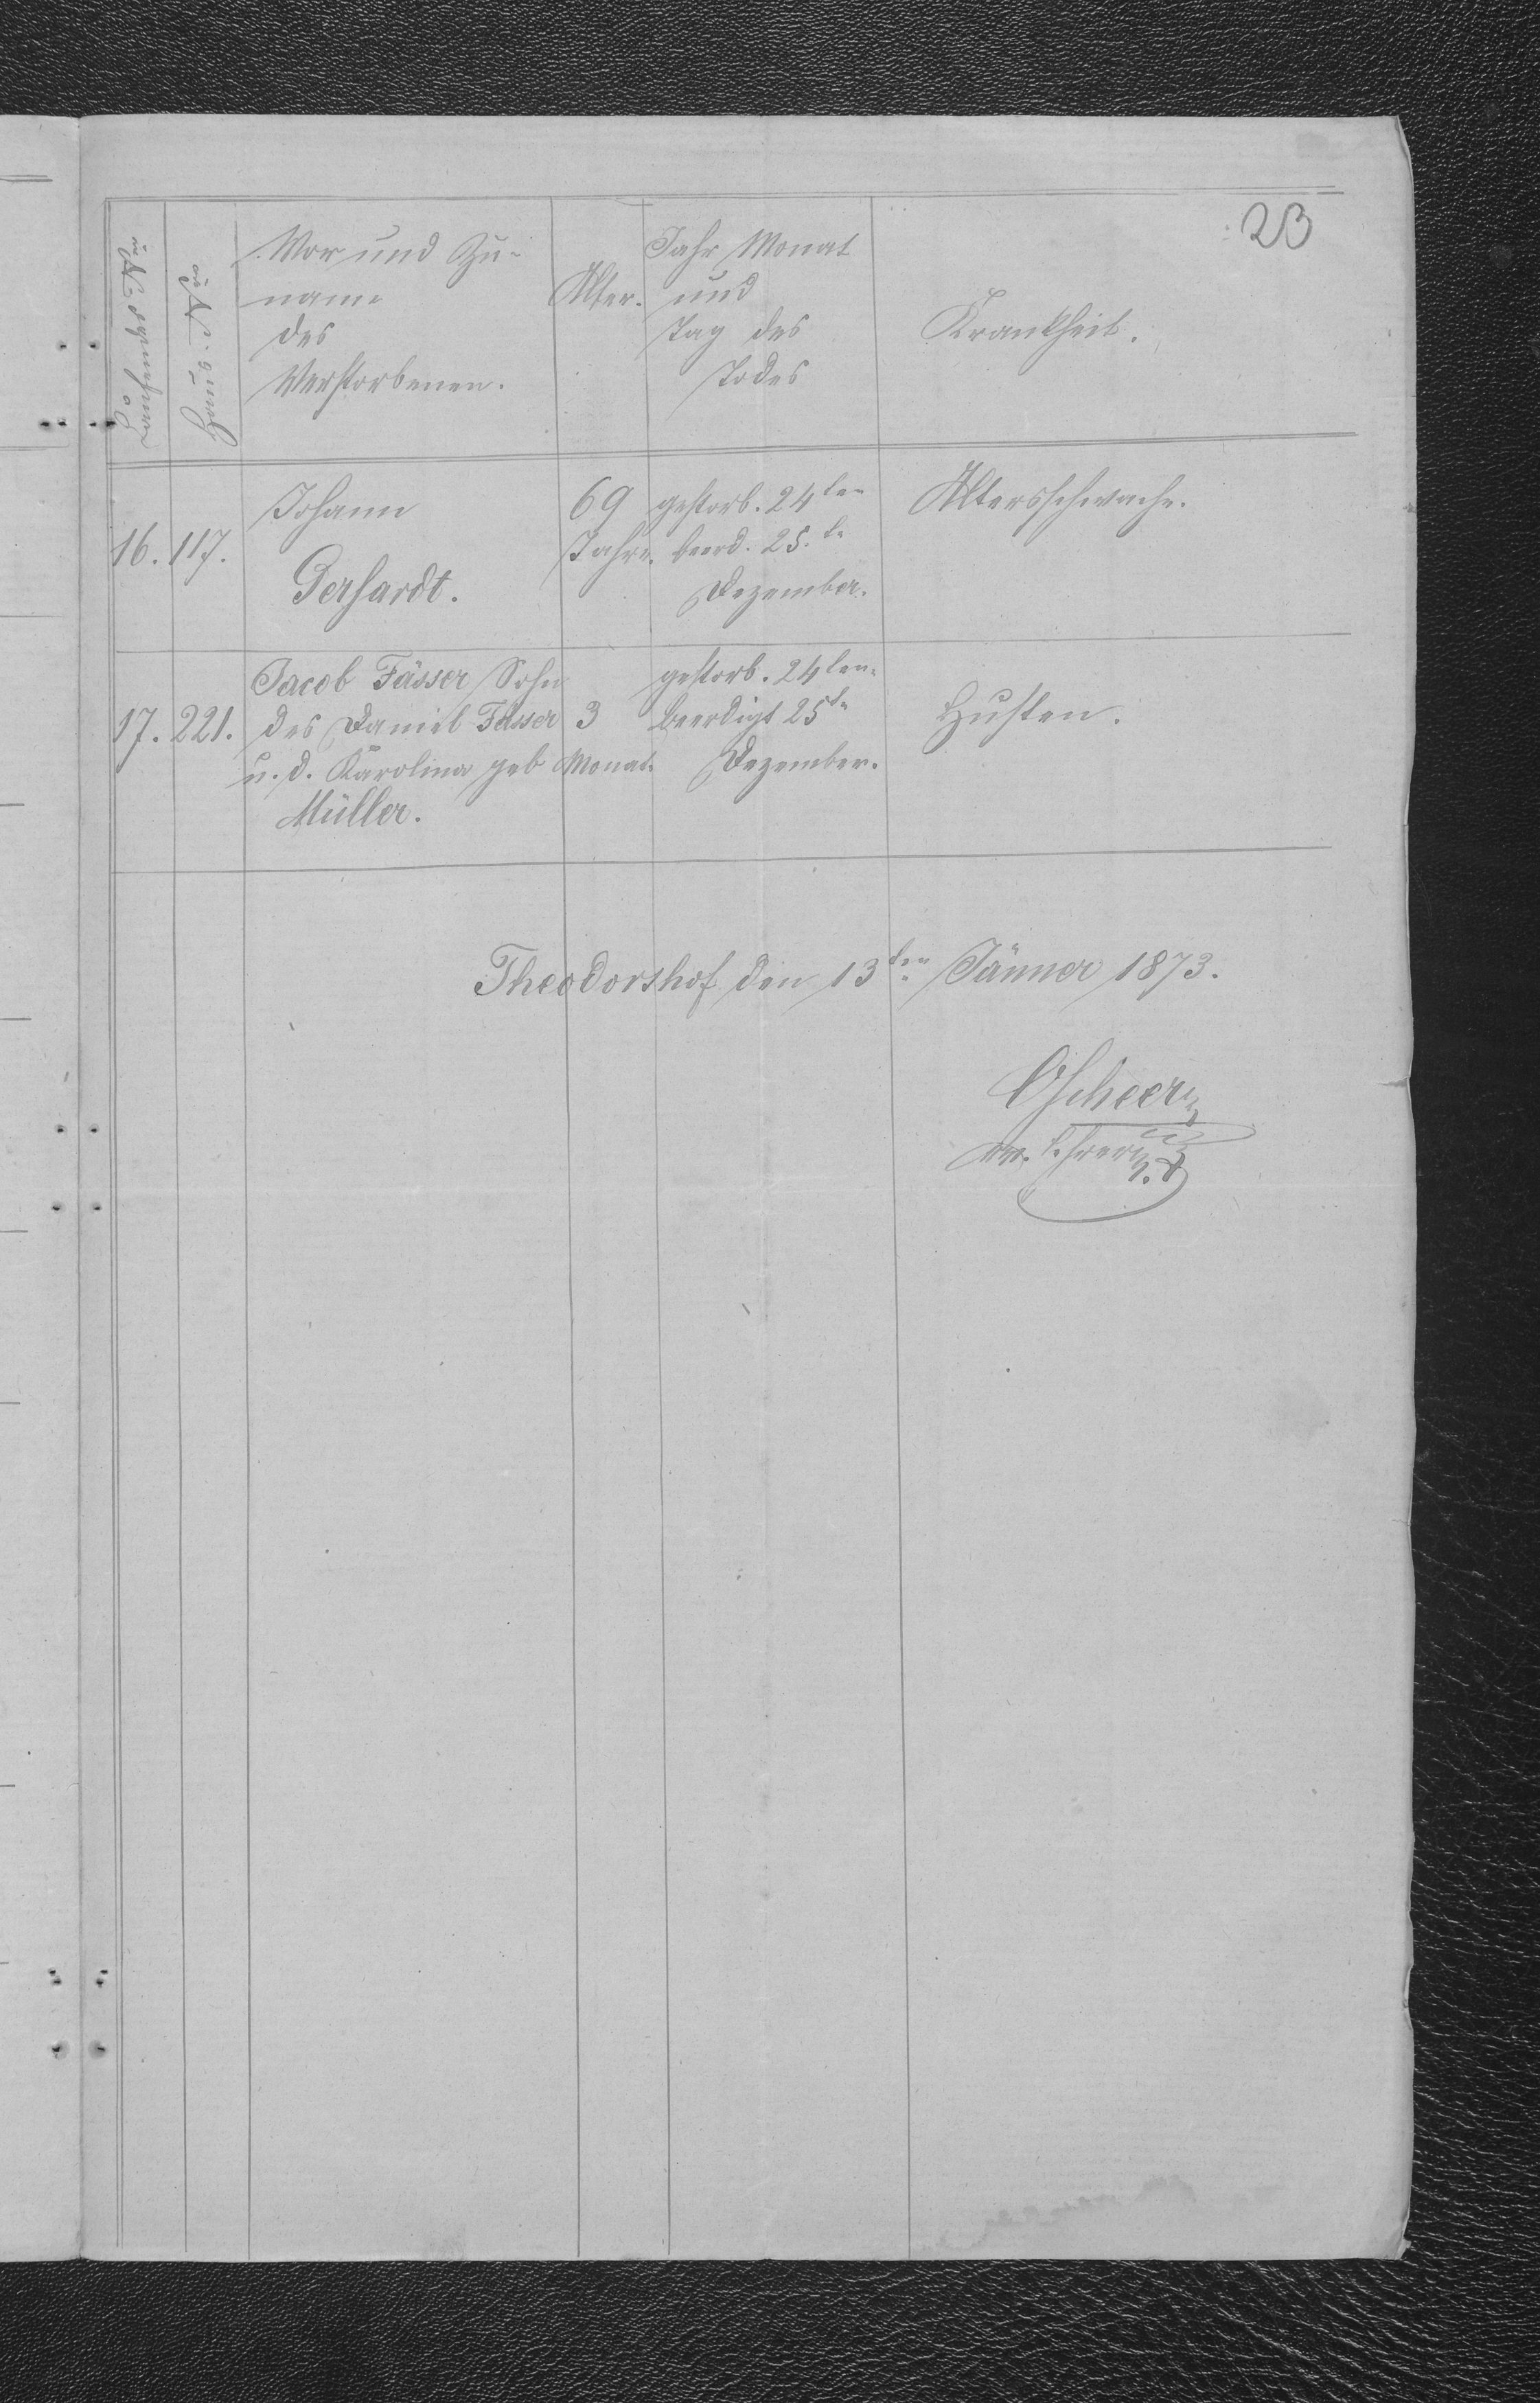 23
Fortlaufende Nro
Haus-Nro
Vor und Zu-
name
des
Verstorbenen.
Alter.
Jahr Monat
und
Tag des
Todes
Krankheit.
16.
117.
Johann
Gerhardt.
69
Jahre.
gestorb. 24ten
beerd. 25.te
Dezember.
Altersschwache.
17.
221.
Jacob Fässer Sohn
des Daniel Fässer
u. d. Karolina geb
Müller.
3
Monat.
gestorb. 24ten
beerdigt 25te
Dezember.
Husten.
Theodorshof den 13ten Jänner 1873.
Scheer
ev. Lehrer